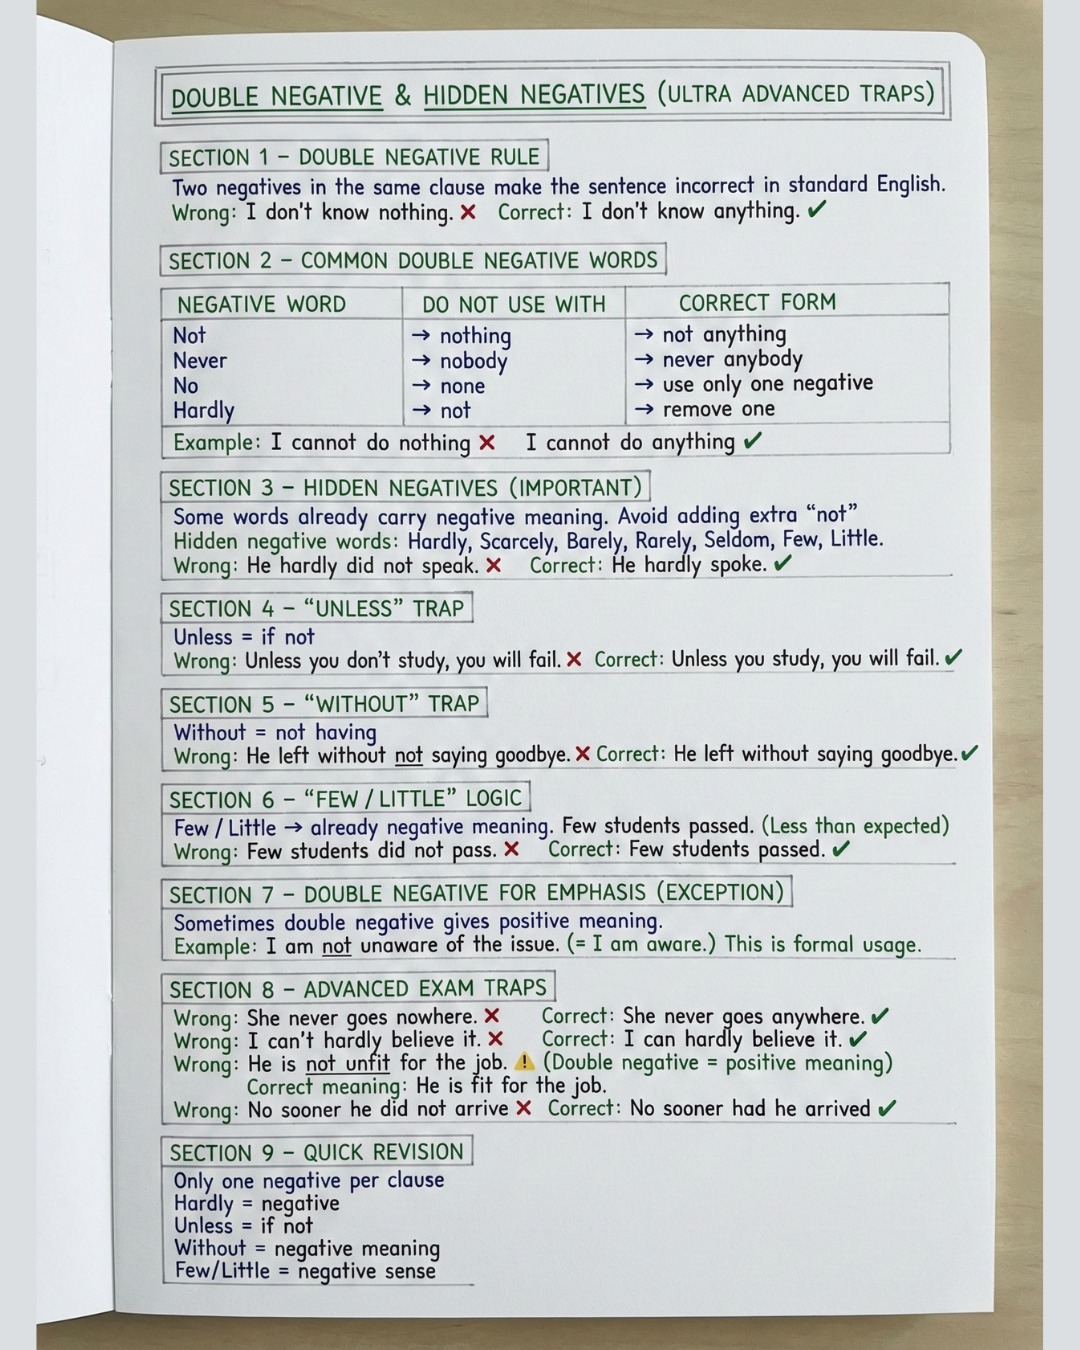 DOUBLE NEGATIVE & HIDDEN NEGATIVES (ULTRA ADVANCED TRAPS)
SECTION 1 – DOUBLE NEGATIVE RULE
Two negatives in the same clause make the sentence incorrect in standard English.
Wrong: I don't know nothing. ✗ Correct: I don't know anything. ✓
SECTION 2 – COMMON DOUBLE NEGATIVE WORDS
NEGATIVE WORD DO NOT USE WITH CORRECT FORM
Not → nothing → not anything
Never → nobody → never anybody
No → none → use only one negative
Hardly → not → remove one
Example: I cannot do nothing ✗ I cannot do anything ✓
SECTION 3 – HIDDEN NEGATIVES (IMPORTANT)
Some words already carry negative meaning. Avoid adding extra “not”
Hidden negative words: Hardly, Scarcely, Barely, Rarely, Seldom, Few, Little.
Wrong: He hardly did not speak. ✗ Correct: He hardly spoke. ✓
SECTION 4 – “UNLESS” TRAP
Unless = if not
Wrong: Unless you don't study, you will fail. ✗ Correct: Unless you study, you will fail. ✓
SECTION 5 – “WITHOUT” TRAP
Without = not having
Wrong: He left without not saying goodbye. ✗ Correct: He left without saying goodbye. ✓
SECTION 6 – “FEW / LITTLE” LOGIC
Few / Little → already negative meaning. Few students passed. (Less than expected)
Wrong: Few students did not pass. ✗ Correct: Few students passed. ✓
SECTION 7 – DOUBLE NEGATIVE FOR EMPHASIS (EXCEPTION)
Sometimes double negative gives positive meaning.
Example: I am not unaware of the issue. (= I am aware.) This is formal usage.
SECTION 8 – ADVANCED EXAM TRAPS
Wrong: She never goes nowhere. ✗ Correct: She never goes anywhere. ✓
Wrong: I can't hardly believe it. ✗ Correct: I can hardly believe it. ✓
Wrong: He is not unfit for the job. ⚠ (Double negative = positive meaning)
Correct meaning: He is fit for the job.
Wrong: No sooner he did not arrive ✗ Correct: No sooner had he arrived ✓
SECTION 9 – QUICK REVISION
Only one negative per clause
Hardly = negative
Unless = if not
Without = negative meaning
Few/Little = negative sense